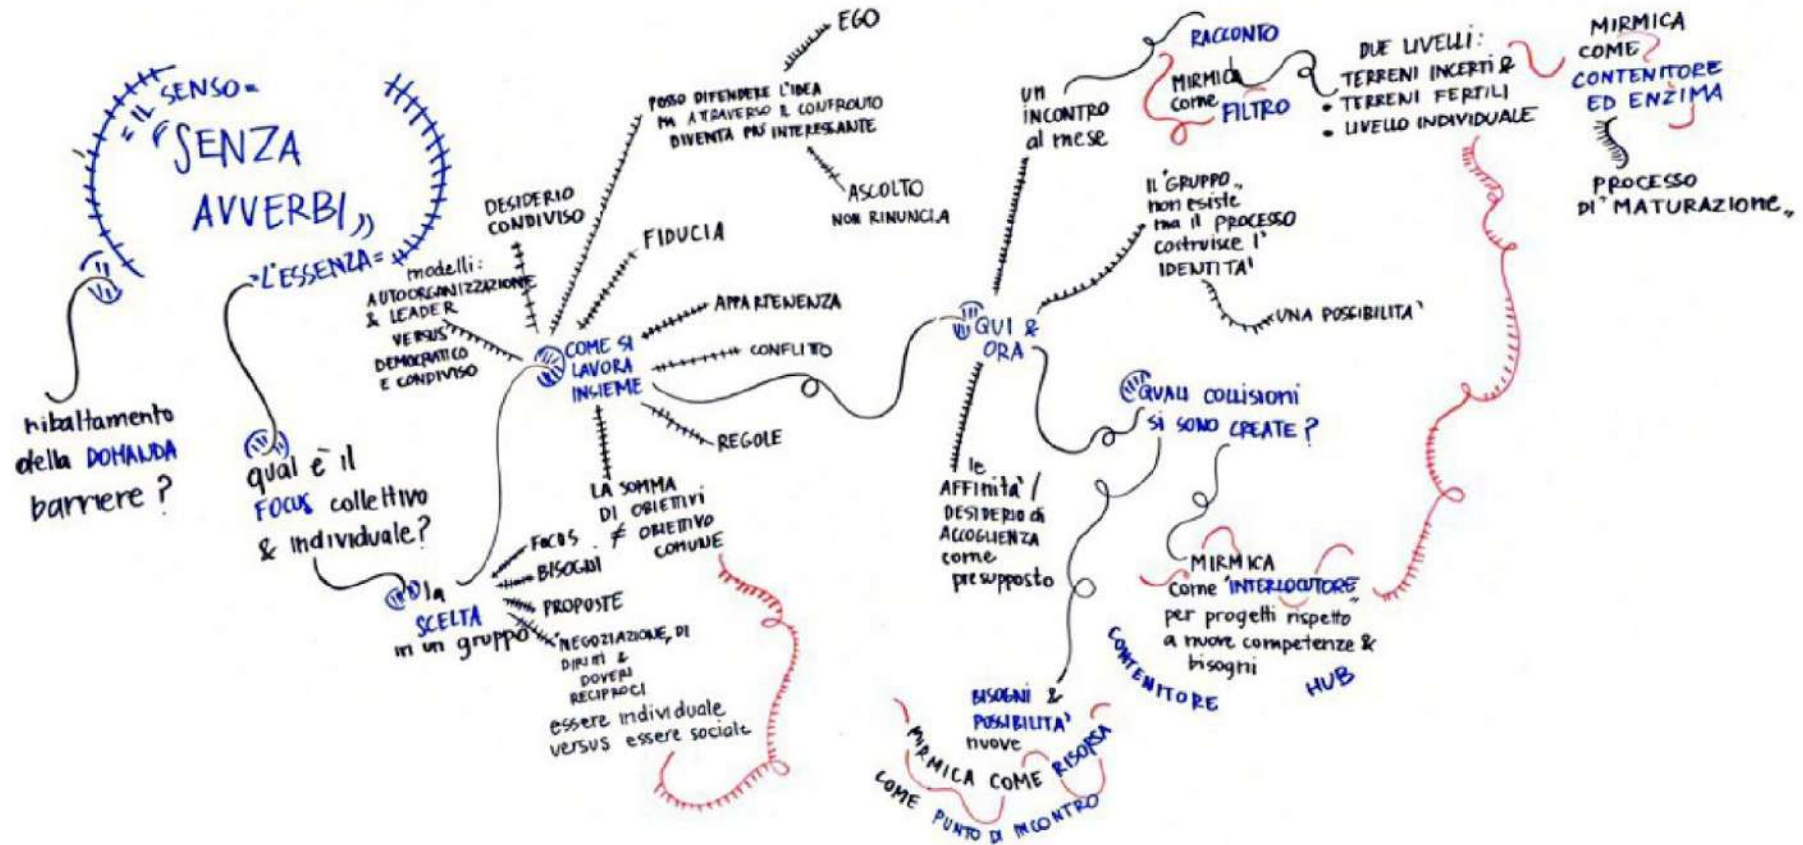 "IL SENSO"
"SENZA
AVVERBI"
"L'ESSENZA"
ribaltamento
della DOMANDA
barriere?
qual è il
FOCUS collettivo
& individuale?
la
SCELTA
in un gruppo
FOCUS
BISOGNI
PROPOSTE
"NEGOZIAZIONE" DI
DIRITTI &
DOVERI
RECIPROCI
essere individuale
versus essere sociale
COME SI
LAVORA
INSIEME
modelli:
AUTOORGANIZZAZIONE
& LEADER
VERSUS
DEMOCRATICO
E CONDIVISO
DESIDERIO
CONDIVISO
POSSO DIFENDERE L'IDEA
MA ATTRAVERSO IL CONFRONTO
DIVENTA PIÙ INTERESSANTE
EGO
ASCOLTO
NON RINUNCIA
FIDUCIA
APPARTENENZA
CONFLITTO
REGOLE
LA SOMMA
DI OBIETTIVI
≠ OBIETTIVO
COMUNE
QUI &
ORA
un
INCONTRO
al mese
RACCONTO
MIRMICA
come
FILTRO
DUE LIVELLI:
TERRENI INCERTI &
• TERRENI FERTILI
• LIVELLO INDIVIDUALE
MIRMICA
COME
CONTENITORE
ED ENZIMA
PROCESSO
DI "MATURAZIONE"
IL "GRUPPO"
non esiste
ma il PROCESSO
costruisce l'
IDENTITA'
UNA POSSIBILITA'
le
AFFINITA' /
DESIDERIO di
ACCOGLIENZA
come
presupposto
QUALI COLLISIONI
SI SONO CREATE?
MIRMICA
come "INTERLOCUTORE"
per progetti rispetto
a nuove competenze &
bisogni
CONTENITORE
HUB
BISOGNI &
POSSIBILITA'
nuove
MIRMICA COME RISORSA
COME PUNTO DI INCONTRO